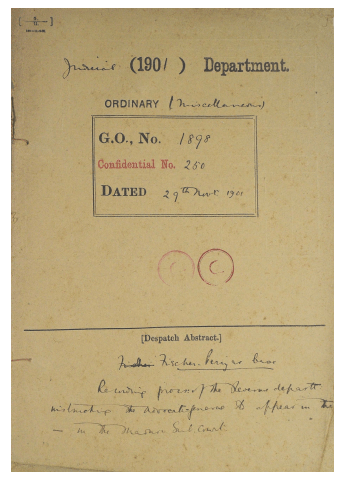 Judicial (1901) Department.
ORDINARY (Miscellaneous)
G.O., No. 1898
Confidential No. 250
DATED 29th Novr 1901
C C
[Despatch Abstract.]
Fischer Fischer
Recording proc of the Revenue deptt
instructing the to appear in the
— in the Madras Civil Court